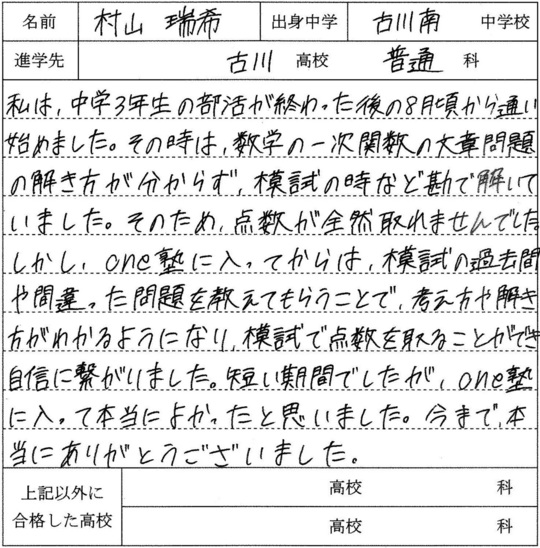 名前 村山 瑞希 出身中学 古川南 中学校
進学先 古川 高校 普通 科
私は、中学3年生の部活が終わった後の8月頃から通い
始めました。その時は、数学の一次関数の文章問題
の解き方が分からず、模試の時など勘で解いて
いました。そのため、点数が全然取れませんでした
しかし、one塾に入ってからは、模試の過去問
や間違った問題を教えてもらうことで、考え方や解き
方がわかるようになり、模試で点数を取ることができ
自信に繋がりました。短い期間でしたが、one塾
に入って本当によかったと思いました。今まで、本
当にありがとうございました。
上記以外に
合格した高校
高校 科
高校 科